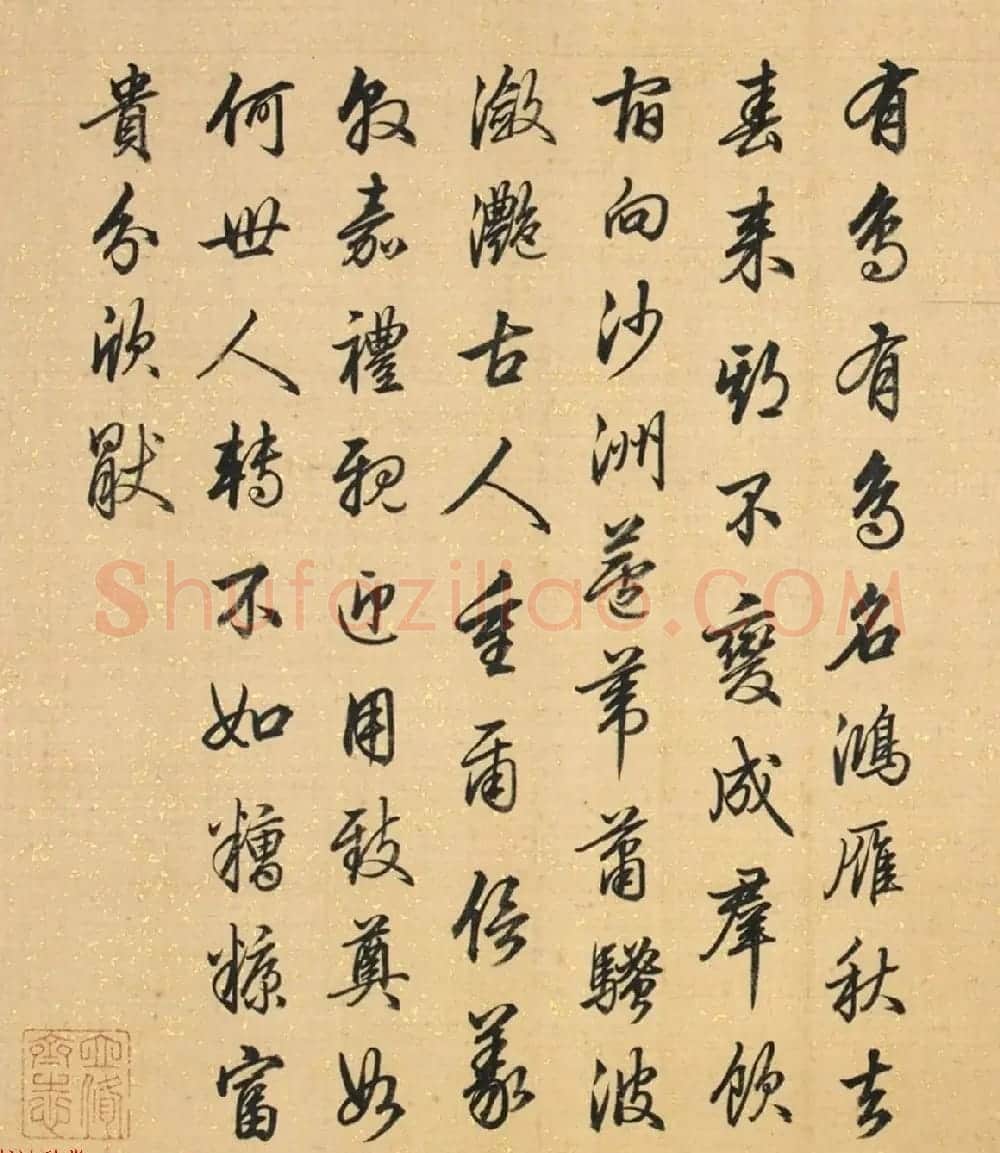 有鳥有鳥名鴻雁秋去
春来期不變成羣飲
宿向沙洲蘆葦蕭騷波
瀲灩古人重爾信義
嘉禮親迎用致奠如
何世人轉不如糟糠富
貴分欣厭
Shufaziliao.COM